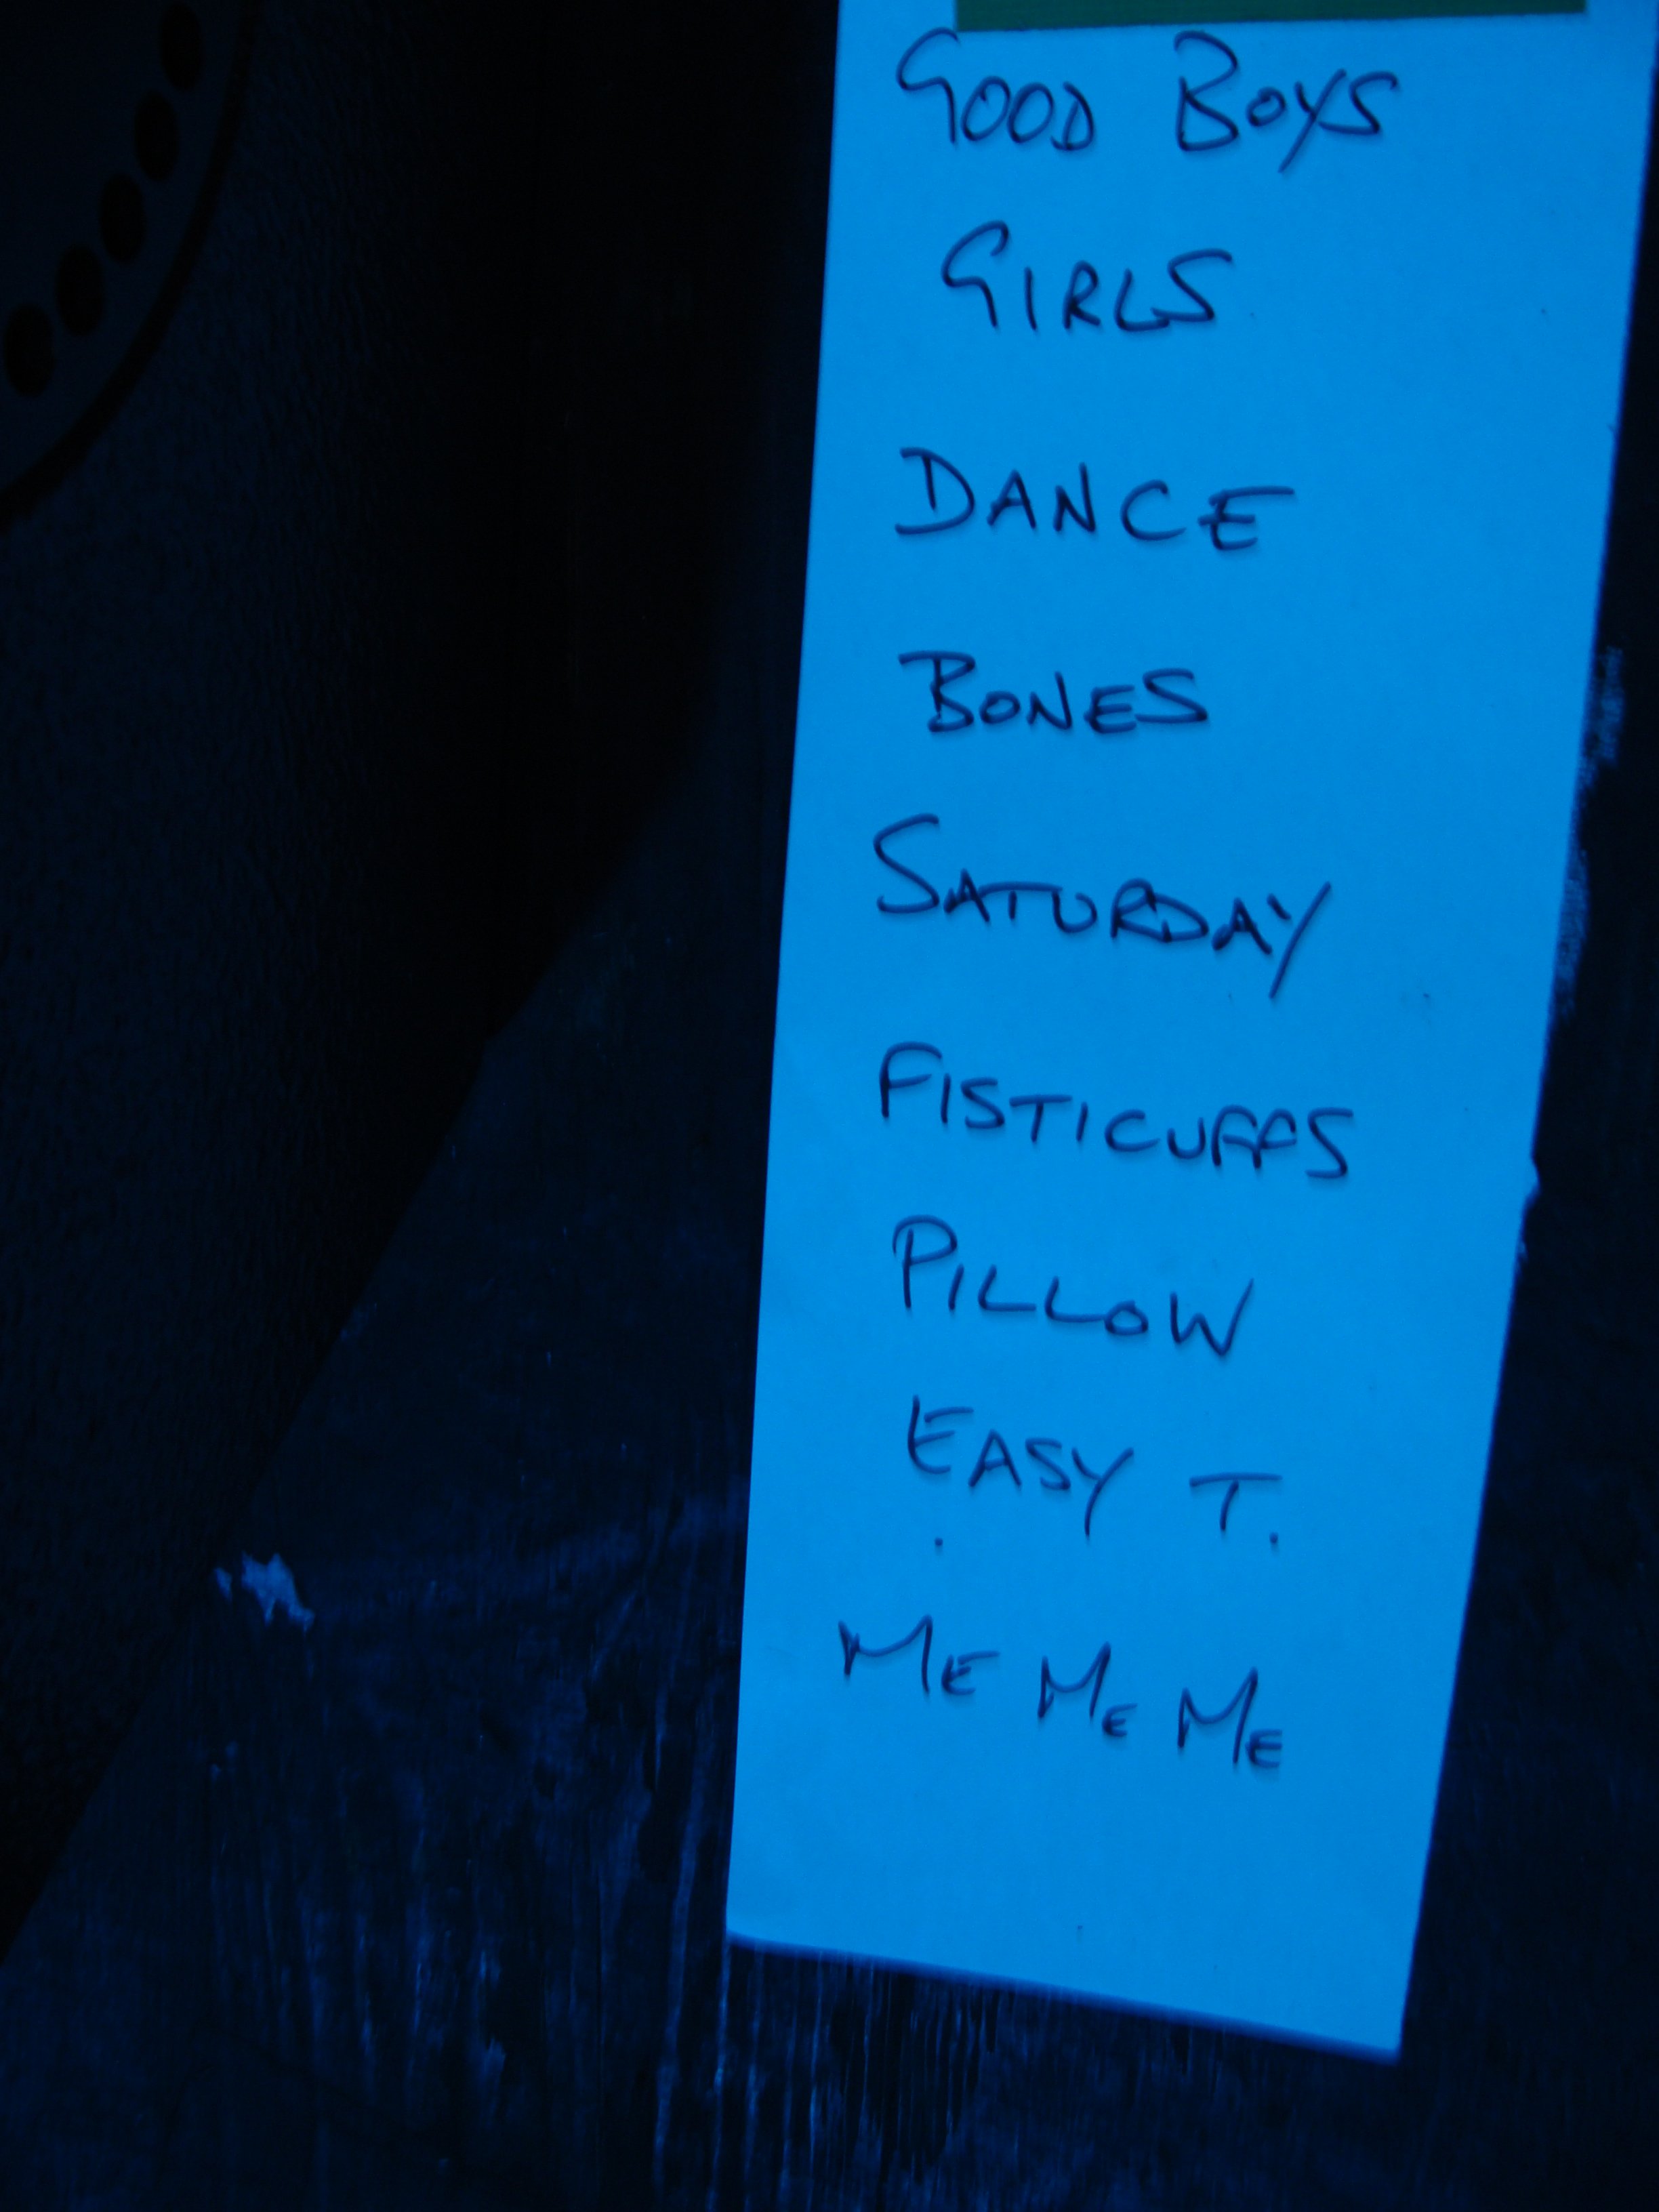 GOOD BOYS
GIRLS
DANCE
BONES
SATURDAY
FISTICUFFS
PILLOW
EASY T.
ME ME ME